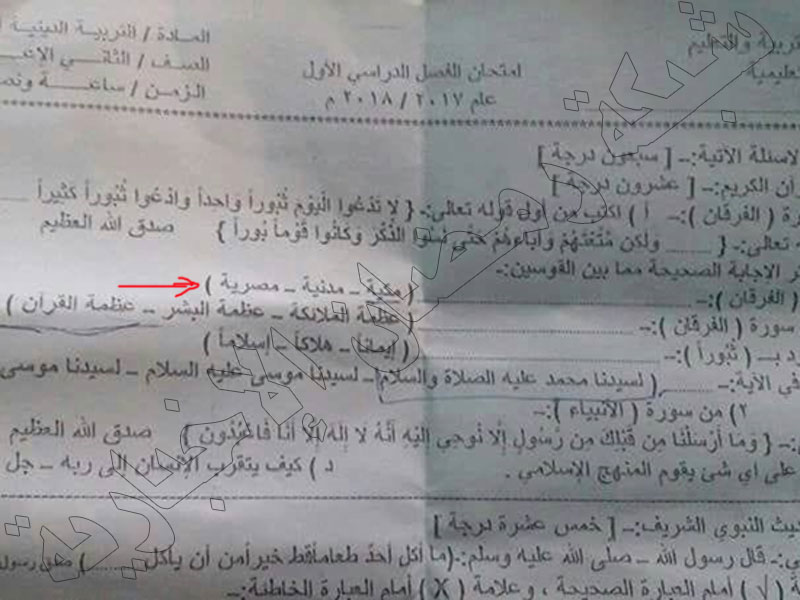 تربية والتعليم
امتحان الفصل الدراسي الأول
المادة / التربية الدينية
تعليمية
عام ٢٠١٧ / ٢٠١٨ م
الصف / الثاني
الزمن / ساعة
الاسئلة الآتية:- [ سبعون درجة ]
الكريم:- [ عشرون درجة ]
( الفرقان ):- أ ) اكتب من أول قوله تعالى:- { لا تَدْعُوا الْيَوْمَ ثُبُوراً وَاحِداً وَادْعُوا ثُبُوراً كَثِيراً ......
تعالى:- { ...... وَلَكِن مَّتَّعْتَهُمْ وَآبَاءهُمْ حَتَّى نَسُوا الذِّكْرَ وَكَانُوا قَوْماً بُوراً } صدق الله العظيم
الاجابة الصحيحة مما بين القوسين:-
( الفرقان ):- ...... ( مكية – مدنية – مصرية )
سورة ( الفرقان ):- ...... ( عظمة الملائكة – عظمة البشر – عظمة القرآن )
بـ ( ثُبُوراً ):- ...... ( إيماناً – هلاكاً – إسلاماً )
في الآية:- ...... ( لسيدنا محمد عليه الصلاة والسلام – لسيدنا موسى عليه السلام – لسيدنا موسى
٢) من سورة ( الأنبياء ):-
{ وَمَا أَرْسَلْنَا مِن قَبْلِكَ مِن رَّسُولٍ إِلَّا نُوحِي إِلَيْهِ أَنَّهُ لَا إِلَهَ إِلَّا أَنَا فَاعْبُدُونِ } صدق الله العظيم
على اي شئ يقوم المنهج الإسلامي . د ) كيف يتقرب الإنسان إلى ربه – جل
النبوي الشريف:- [ خمس عشرة درجة ]
قال رسول الله – صلى الله عليه وسلم:-(ما أكل أحدٌ طعاماً قط خيراً من أن يأكل ......) صدق رسول
( √ ) أمام العبارة الصحيحة ، وعلامة ( X ) أمام العبارة الخاطئة:-